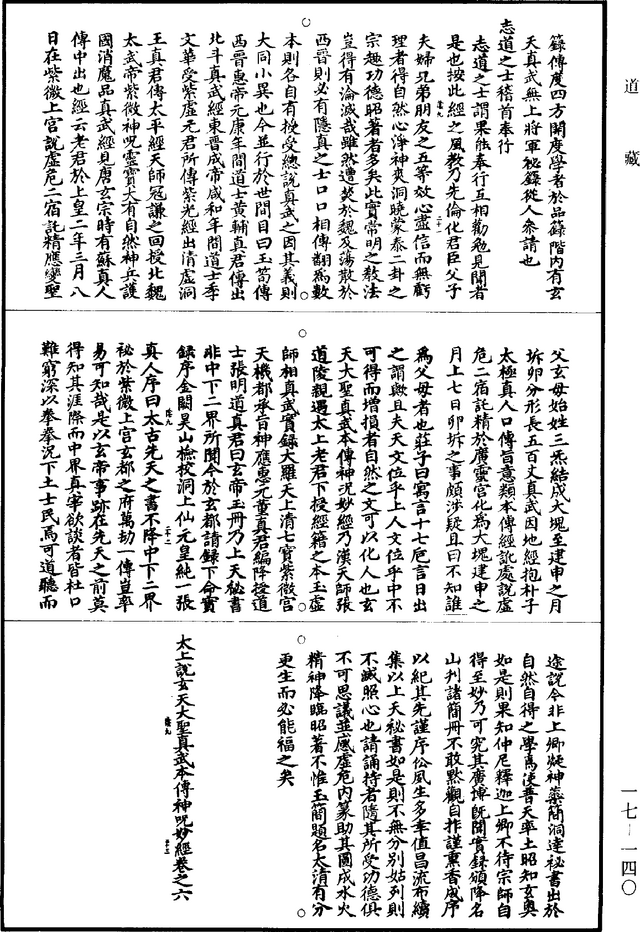 道藏
籙傳度四方開度學者於品籙階內有玄
天真武無上將軍秘籙從人參請也
志道之士稽首奉行
志道之士謂果能奉行互相勸勉見聞者
是也按此經之風教乃先倫化君臣父子
夫婦兄弟朋友之五等效心盡信而無虧
理者得自然心淨神爽洞曉蒙泰二卦之
宗趣功德昭著者多矣此實常明之教法
豈得有淪滅哉雖然遭焚於魏及蕩散於
西晉則必有隱真之士口口相傳翻為數
本則各自有授受總說真武之因其義則
大同小異也今並行於世間目曰玉笥傳
西晉惠帝元康年間道士黃輔真君傳出
北斗真武經東晉成帝咸和年間道士李
文華受紫虛元君所傳紫光經出清虛洞
王真君傳太平經天師冠謙之回授北魏
太武帝紫微神呪靈寶大有自然神兵護
國消魔品真武經見唐玄宗時有蘇真人
傳中出也經云老君於上皇二年三月八
日在紫微上宮說虛危二宿託精應變聖
父玄母始姓三炁結成大塊至建申之月
坼卵分形長五百丈真武因地經抱朴子
太極真人口傳旨意類本傳經訛處說虛
危二宿託精於廣靈宮化為大塊建申之
月上七日卯坼之事頗涉疑且曰不知誰
為父母者也莊子曰寓言十七巵言日出
之謂歟且夫天文位乎上人文位乎中不
可得而增損者自然之文可以化人也玄
天大聖真武本傳神呪妙經乃漢天師張
道陵親遇太上老君下授經籍之本玉虛
師相真武實錄大羅天上清七寶紫微宮
天機都承旨神應惠元董真君編降授道
士張明道真君曰玄帝玉冊乃上天秘書
非中下二界所聞今於玄都請錄下命實
錄序金闕昊山檢校洞上仙元皇純一張
真人序曰太古先天之書不降中下二界
秘於紫微上宮玄都之府萬劫一傳豈率
易可知哉是以玄帝事跡在先天之前莫
得知其涯際而中界真宰欲談者皆杜口
難窮深以拳拳況下土士民焉可道聽而
途說今非上卿凝神藥簡洞達秘書出於
自然自得之學焉使普天率土昭知玄奧
如是則果知仲尼釋迦上卿不待宗師自
得至妙乃可究其廣博旣聞實錄頒降名
山刋諸簡冊不敢黙觀自拃謹熏香成序
以紀其先謹序伀風生多幸值昌流布續
集以上天秘書如是則不無分別姑列則
不滅照心也請誦持者隨其所受功德俱
不可思議並感虛危內篆助其圓成水火
精神降臨昭著不惟玉簡題名太清有分
更生而必能福之矣
太上說玄天大聖真武本傳神呪妙經卷之六
一七－一四〇